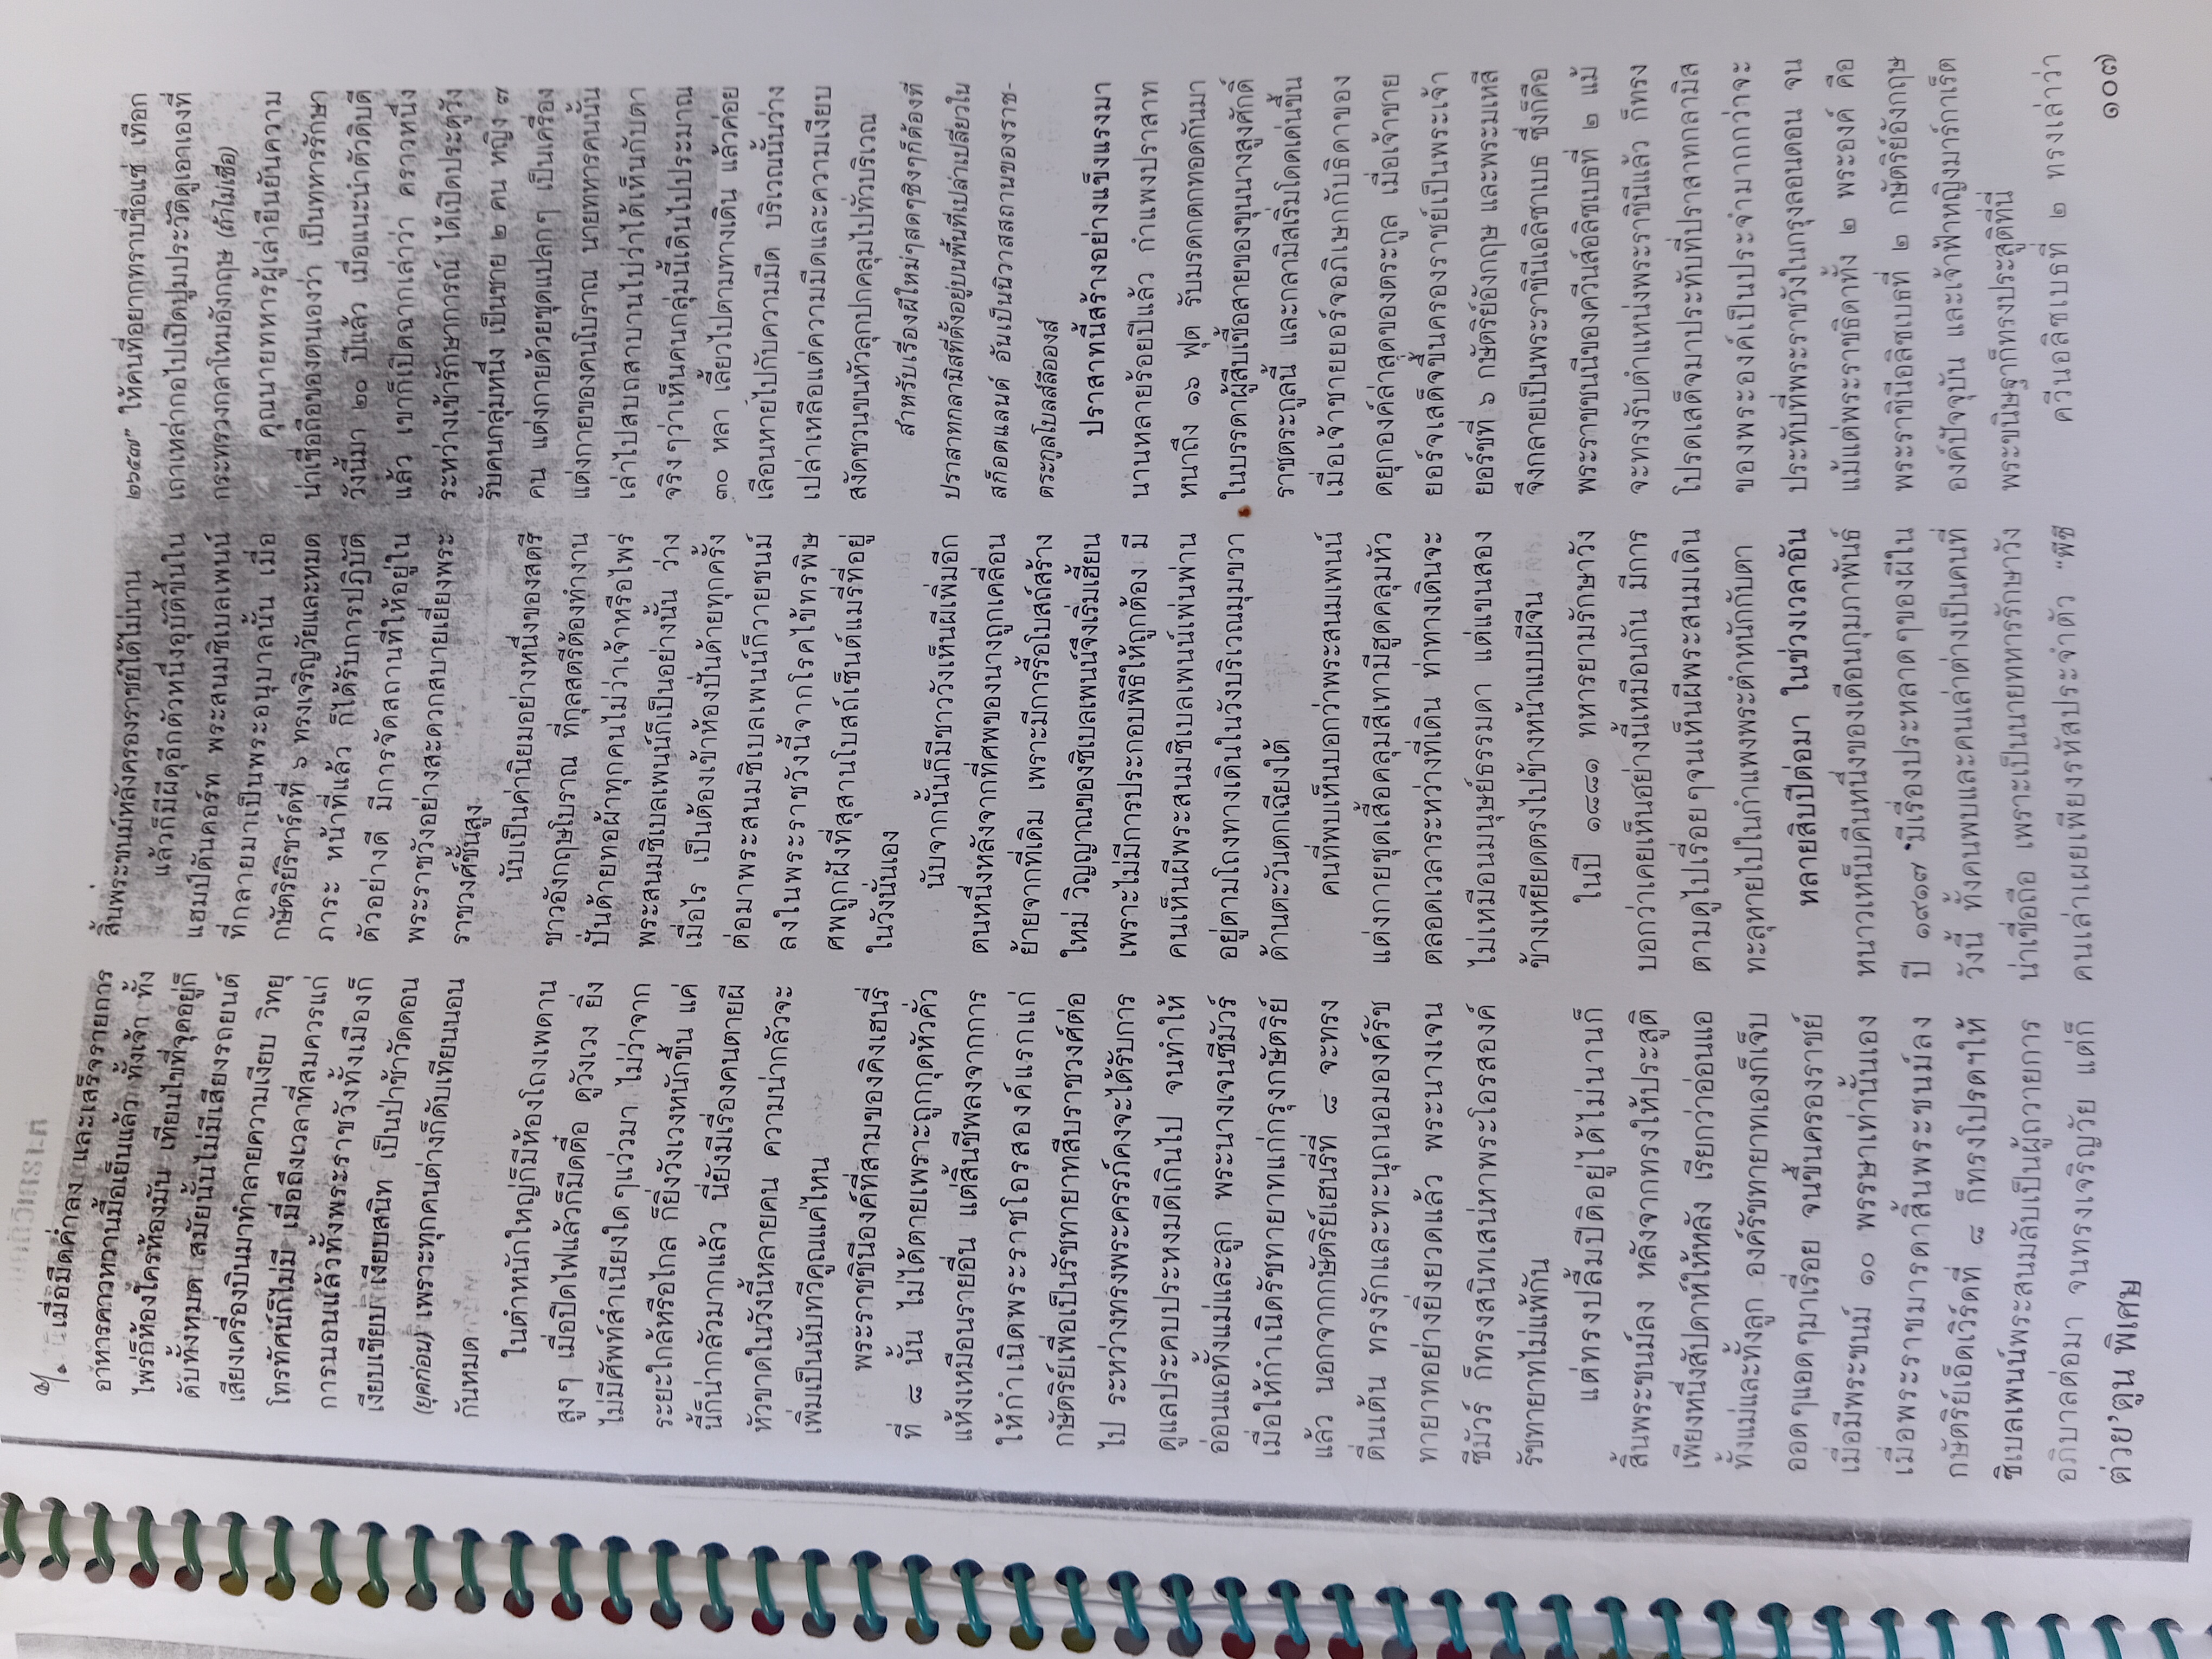 เมื่อมืดค่ำลง และเสร็จรายการ
อาหารคาวหวานมื้อเย็นแล้ว ทั้งเจ้า ทั้ง
ไพร่ก็ท้องใครท้องมัน เทียนไขที่จุดอยู่ก็
ดับทั้งหมด สมัยนั้นไม่มีเสียงรถยนต์
เสียงเครื่องบินมาทำลายความเงียบ วิทยุ
โทรทัศน์ก็ไม่มี เมื่อถึงเวลาที่สมควรแก่
การนอนแล้วทั้งพระราชวังทั้งเมืองก็
เงียบเชียบ เงียบสนิท เป็นป่าช้าวัดดอน
(ยุคก่อน) เพราะทุกคนต่างก็ดับเทียนนอน
กันหมด
ในตำหนักใหญ่ก็มีห้องโถงเพดาน
สูงๆ เมื่อปิดไฟแล้วก็มืดตื๋อ ดูวังเวง ยิ่ง
ไม่มีศัพท์สำเนียงใดๆแว่วมา ไม่ว่าจาก
ระยะใกล้หรือไกล ก็ยิ่งวังเวงหนักขึ้น แค่
นี้ก็น่ากลัวมากแล้ว นี่ยังมีเรื่องคนตายผี
หัวขาดในวังนี้หลายคน ความน่ากลัวจะ
เพิ่มเป็นนับทวีคูณแค่ไหน
พระราชชินีองค์ที่สามของคิงเฮนรี่
ที่ ๘ นั้น ไม่ได้ตายเพราะถูกกุดหัวคั่ว
แห้งเหมือนรายอื่น แต่สิ้นชีพลงจากการ
ให้กำเนิดพระราชโอรสองค์แรกแก่
กษัตริย์เพื่อเป็นรัชทายาทสืบราชวงศ์ต่อ
ไป ระหว่างทรงพระครรภ์คงจะได้รับการ
ดูแลประคบประหงมดีเกินไป จนทำให้
อ่อนแอทั้งแม่และลูก พระนางเจนซีมัวร์
เมื่อให้กำเนิดรัชทายาทแก่กรุงกษัตริย์
แล้ว นอกจากกษัตริย์เฮนรี่ที่ ๘ จะทรง
ตื่นเต้น ทรงรักและทะนุถนอมองค์รัช
ทายาทอย่างยิ่งยวดแล้ว พระนางเจน
ซีมัวร์ ก็ทรงสนิทเสน่หาพระโอรสองค์
รัชทายาทไม่แพ้กัน
แต่ทรงปลื้มปีติอยู่ได้ไม่นานก็
สิ้นพระชนม์ลง หลังจากทรงให้ประสูติ
เพียงหนึ่งสัปดาห์ให้หลัง เรียกว่าอ่อนแอ
ทั้งแม่และทั้งลูก องค์รัชทายาทเองก็เจ็บ
ออดๆแอดๆมาเรื่อย จนขึ้นครองราชย์
เมื่อมีพระชนม์ ๑๐ พรรษาเท่านั้นเอง
เมื่อพระราชมารดาสิ้นพระชนม์ลง
กษัตริย์เอ็ดเวิร์ดที่ ๘ ก็ทรงโปรดฯให้
ซิเบลเพนน์พระสนมลับเป็นผู้ถวายการ
อภิบาลต่อมา จนทรงเจริญวัย แต่ก็
สิ้นพระชนม์หลังครองราชย์ได้ไม่นาน
แล้วก็มีผีดุอีกตัวหนึ่งอุบัติขึ้นใน
แฮมป์ตันคอร์ท พระสนมซิเบลเพนน์
ที่กลายมาเป็นพระอนุบาลนั้น เมื่อ
กษัตริย์ริชาร์ดที่ ๖ ทรงเจริญวัยและหมด
ภาระ หน้าที่แล้ว ก็ได้รับการปฏิบัติ
ตัวอย่างดี มีการจัดสถานที่ให้อยู่ใน
พระราชวังอย่างสะดวกสบายเยี่ยงพระ
ราชวงศ์ชั้นสูง
นับเป็นค่านิยมอย่างหนึ่งของสตรี
ชาวอังกฤษโบราณ ที่กุลสตรีต้องทำงาน
ปั่นด้ายทอผ้าทุกคนไม่ว่าเจ้าหรือไพร่
พระสนมซิเบลเพนน์ก็เป็นอย่างนั้น ว่าง
เมื่อไร เป็นต้องเข้าห้องปั่นด้ายทุกครั้ง
ต่อมาพระสนมซิเบลเพนน์ก็วายชนม์
ลงในพระราชวังนี้จากโรคไข้ทรพิษ
ศพถูกฝังที่สุสานโบสถ์เซ็นต์แมรี่ที่อยู่
ในวังนั่นเอง
นับจากนั้นก็มีชาววังเห็นผีเพิ่มอีก
ตนหนึ่งหลังจากที่ศพของนางถูกเคลื่อน
ย้ายจากที่เดิม เพราะมีการรื้อโบสถ์สร้าง
ใหม่ วิญญาณของซิเบลเพนน์จึงเริ่มเฮี้ยน
เพราะไม่มีการประกอบพิธีให้ถูกต้อง มี
คนเห็นผีพระสนมซิเบลเพนน์เพ่นพ่าน
อยู่ตามโถงทางเดินในวังบริเวณมุมขวา
ด้านตะวันตกเฉียงใต้
คนที่พบเห็นบอกว่าพระสนมเพนน์
แต่งกายชุดเสื้อคลุมสีเทามีฮูดคลุมหัว
ตลอดเวลาระหว่างที่เดิน ท่าทางเดินจะ
ไม่เหมือนมนุษย์ธรรมดา แต่แขนสอง
ข้างเหยียดตรงไปข้างหน้าแบบผีจีน
ในปี ๑๘๘๑ ทหารยามรักษาวัง
บอกว่าเคยเห็นอย่างนี้เหมือนกัน มีการ
ตามดูไปเรื่อยๆจนเห็นผีพระสนมเดิน
ทะลุหายไปในกำแพงพระตำหนักกับตา
หลายสิบปีต่อมา ในช่วงเวลาอัน
หนาวเหน็บคืนหนึ่งของเดือนกุมภาพันธ์
ปี ๑๙๑๗ มีเรื่องประหลาดๆของผีใน
วังนี้ ทั้งคนพบและคนเล่าต่างเป็นคนที่
น่าเชื่อถือ เพราะเป็นนายทหารรักษาวัง
คนเล่าเผยเพียงรหัสประจำตัว “พีซี
๒๖๕๗” ให้คนที่อยากทราบชื่อแซ่ เทือก
เถาเหล่ากอไปเปิดปูมประวัติดูเอาเองที่
กระทรวงกลาโหมอังกฤษ (ถ้าไม่เชื่อ)
คุณนายทหารผู้เล่ายืนยันความ
น่าเชื่อถือของตนเองว่า เป็นทหารรักษา
วังนี้มา ๒๐ ปีแล้ว เมื่อแนะนำตัวดิบดี
แล้ว เขาก็เปิดฉากเล่าว่า คราวหนึ่ง
ระหว่างเข้ารักษาการณ์ ได้เปิดประตูวัง
รับคนกลุ่มหนึ่ง เป็นชาย ๒ คน หญิง ๗
คน แต่งกายด้วยชุดแปลกๆ เป็นเครื่อง
แต่งกายของคนโบราณ นายทหารคนนั้น
เล่าไปสบถสาบานไปว่าได้เห็นกับตา
จริงๆว่าเห็นคนกลุ่มนี้เดินไปประมาณ
๓๐ หลา เลี้ยวไปตามทางเดิน แล้วค่อย
เลือนหายไปกับความมืด บริเวณนั้นว่าง
เปล่าเหลือแต่ความมืดและความเงียบ
สงัดชวนขนหัวลุกปกคลุมไปทั่วบริเวณ
สำหรับเรื่องผีใหม่ๆสดๆซิงๆก็ต้องที่
ปราสาทกลามิสที่ตั้งอยู่บนพื้นที่เปล่าเปลี่ยวใน
สก็อตแลนด์ อันเป็นนิวาสสถานของราช-
ตระกูลโบลส์ลีออง‌ส์
ปราสาทนี้สร้างอย่างแข็งแรงมา
นานหลายร้อยปีแล้ว กำแพงปราสาท
หนาถึง ๑๖ ฟุต รับมรดกตกทอดกันมา
ในบรรดาผู้สืบเชื้อสายของขุนนางสูงศักดิ์
ราชตระกูลนี้ และกลามิสเริ่มโดดเด่นขึ้น
เมื่อเจ้าชายยอร์จอภิเษกกับธิดาของ
ดยุกองค์ล่าสุดของตระกูล เมื่อเจ้าชาย
ยอร์จเสด็จขึ้นครองราชย์เป็นพระเจ้า
ยอร์ชที่ ๖ กษัตริย์อังกฤษ และพระมเหสี
จึงกลายเป็นพระราชินีเอลิซาเบธ ซึ่งก็คือ
พระราชชนนีของควีนส์อลิซเบธที่ ๒ แม้
จะทรงรับตำแหน่งพระราชินีแล้ว ก็ทรง
โปรดเสด็จมาประทับที่ปราสาทกลามิส
ของพระองค์เป็นประจำมากกว่าจะ
ประทับที่พระราชวังในกรุงลอนดอน จน
แม้แต่พระราชธิดาทั้ง ๒ พระองค์ คือ
พระราชินีอลิซเบธที่ ๒ กษัตริย์อังกฤษ
องค์ปัจจุบัน และเจ้าฟ้าหญิงมาร์กาเร็ต
พระขนิษฐาก็ทรงประสูติที่นี่
ควีนอลิซเบธที่ ๒ ทรงเล่าว่า
ต่วย’ตูน พิเศษ
๑๐๗